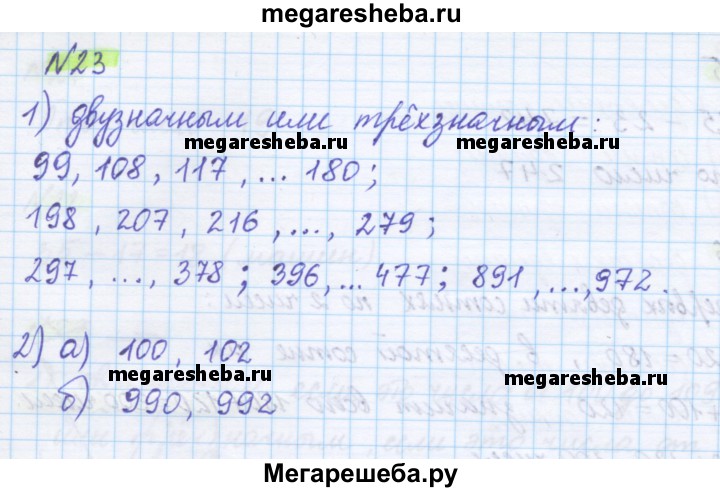 megaresheba.ru
N23
1) двузначным или трёхзначным:
megaresheba.ru megaresheba.ru
99, 108, 117, ... 180;
198, 207, 216, ..., 279;
297, ..., 378; 396, ... 477; 891, ..., 972.
2) а) 100, 102
megaresheba.ru megaresheba.ru
б) 990, 992
Мегарешеба.ру